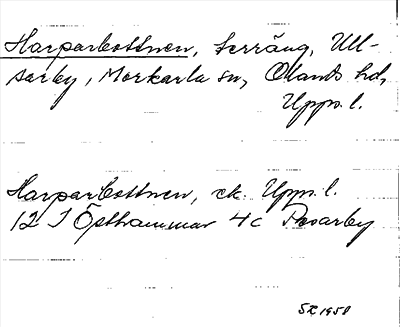 Harparbottnen, terräng, Ull-
sarby, Morkarla sn, Olands hd,
Upps. l.
Harparbottnen, ek. Upps. l.
12 I Östhammar 4c Pasarby
SR 1958